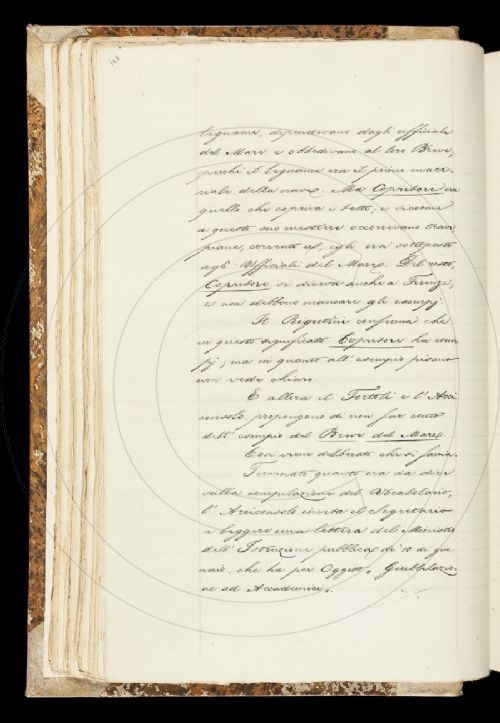 legname, dipendevano dagli ufficiali
del Mare e obbedivano al loro Breve,
perché il legname era il primo mate-
riale della nave. Ma Copritore era
quello che copriva i tetti; e siccome
a questo suo mestiere occorrevano
piane, correnti ec., egli era sottoposto
agli Ufficiali del Mare. Del resto,
Copritore si diceva anche a Firenze,
e non debbono mancare gli esempj.
Il Rigutini conferma che
in questo significato Copritore ha esem-
pj; ma in quanto all' esempio pisano
non vede chiaro.
E allora il Tortoli e l' Arci-
consolo propongono di non far conto
dell' esempio del Breve del Mare.
E così viene deliberato che si faccia.
Terminato quanto era da dire
sulla compilazione del Vocabolario,
l' Arciconsolo invita il Segretario
a leggere una lettera del Ministro
dell' Istruzione pubblica, di 10 di gen-
naio, che ha per Oggetto. Giubbilazio-
ne ad Accademici.